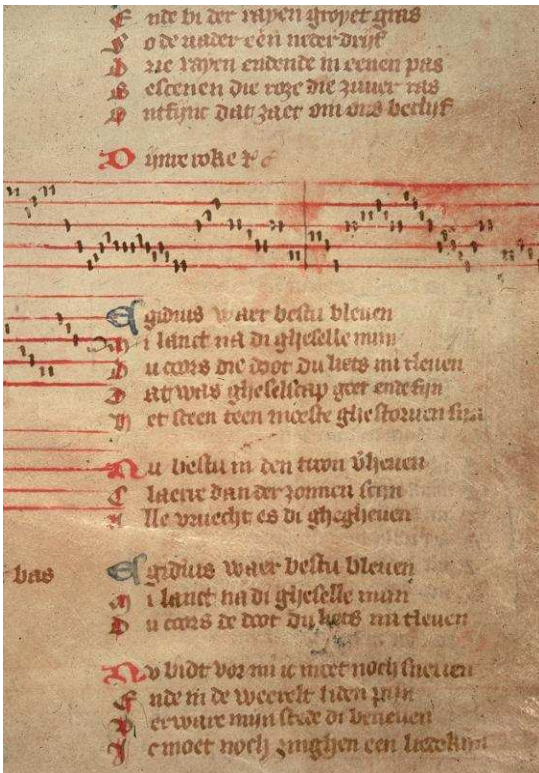 Ende bi der rayen groyet gras
So de nader een neder drijf
Drie rayen endende in eenen pas
Bescenen die roze die zuuer was
Ontfync dat zaet om ons beclijf
Dijnre roke
Egidius waer bestu bleuen
Mi lanct na di gheselle mijn
Du coors die doot du liets mi tleuen
Dat was gheselscap goet ende fijn
Het sceen teen moeste ghestoruen sijn
Nu bestu in den troon vheuen
Claerre dan der zonnen scijn
Alle vruecht es di ghegheuen
bas
Egidius waer bestu bleuen
Mi lanct na di gheselle mijn
Du coors de doot du liets mi tleuen
Nv bidt vor mi ic moet noch sneuen
Ende in de weerelt liden pijn
Verware mijn stede di beneuen
Ic moet noch zinghen een liedekijn